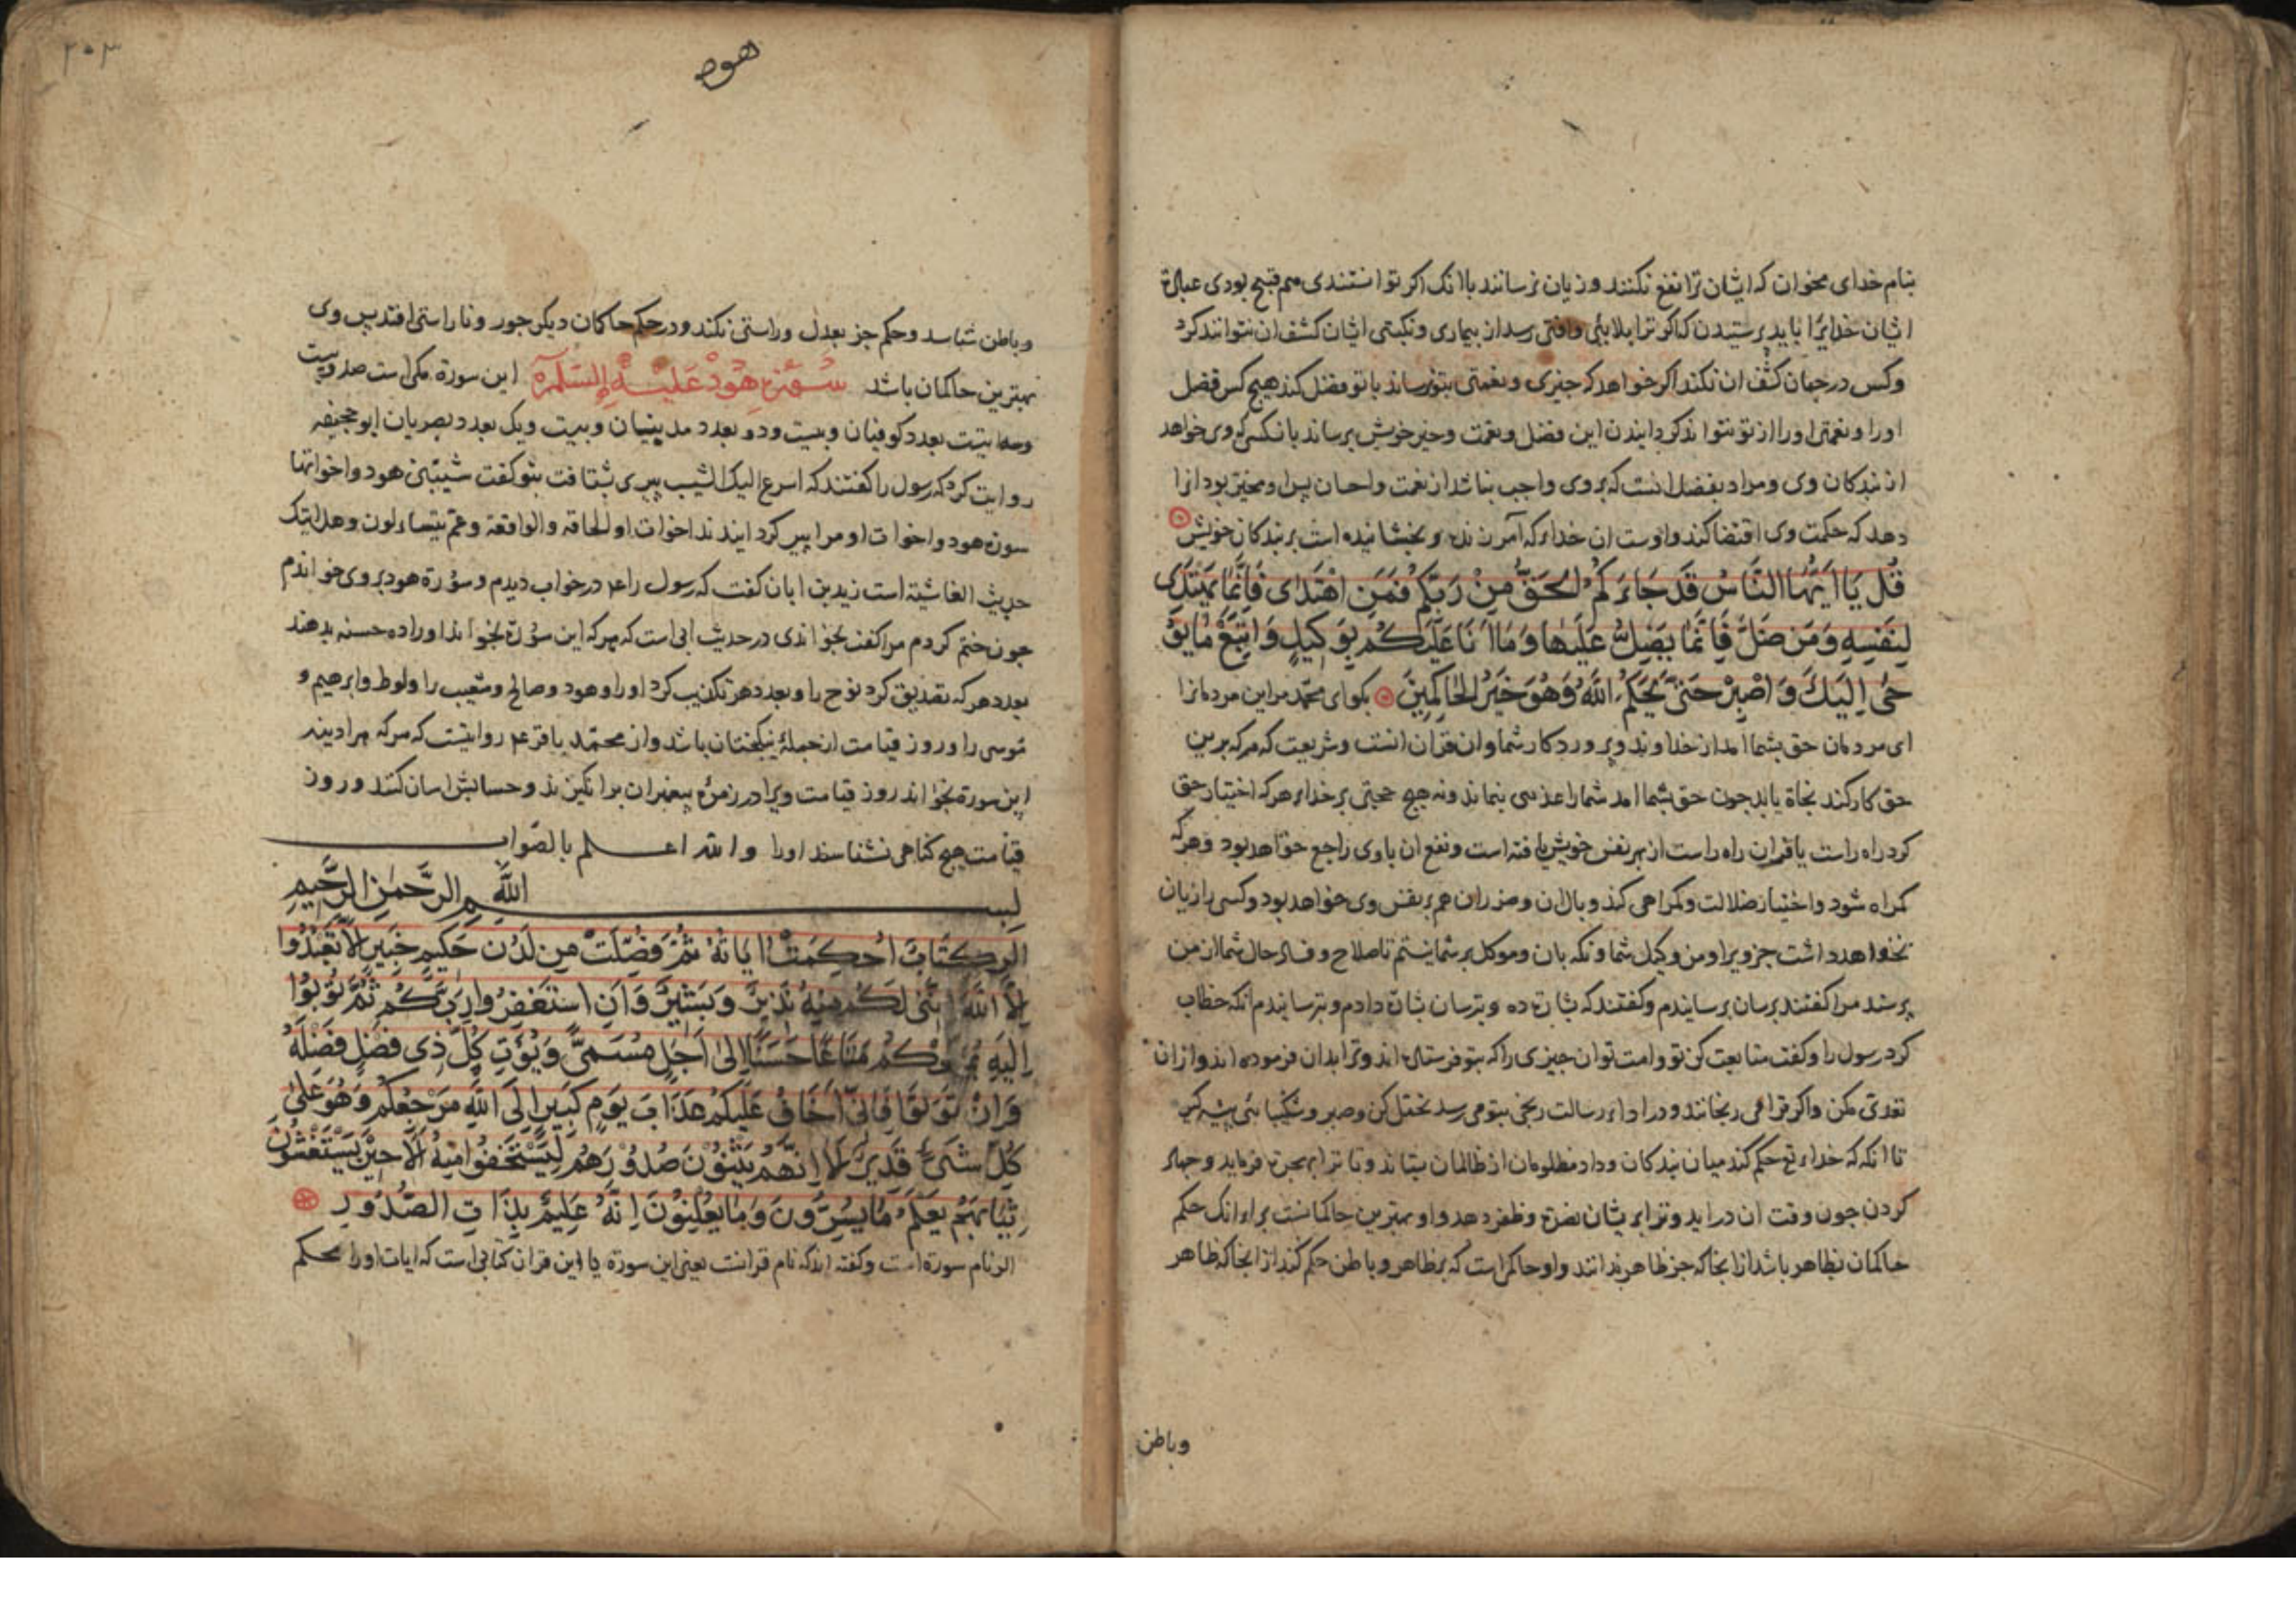 بنام خدای مخوان که ایشان ترا نفع نکنند و زیان نرسانند با انک اکر توانستندی هم قبیح بودی عبادة
ایشان خدایرا باید پرستیدن که اکر ترا بلایی وافتی رسد از بیماری و نکبتی ایشان کشف ان نتوانند کرد
وکس در جهان کشف ان نکند اکر خواهد که چیزی و نعمتی بتو رساند یا تو فضل کند هیچ کس فضل
اورا و نعمتی اورا از تو نتواند کردایندن این فضل و نعمت وخیر خویش برساند بانکسی که وی خواهد
از بندکان وی و مراد بفضل انست که بروی واجب نباشد از نعمت واحسان پس او مخیر بود انرا
دهد که حکمت وی اقتضا کند و اوست ان خدای که آمرزنده و بخشاینده است بر بندکان خویش
قُل يَا اَيُّهَا النَّاسُ قَد جَاءَكُمُ الحَقُّ مِنْ رَبِّكُم فَمَنِ اهْتَدٰى فَاِنَّمَا يَهتَدِى
لِنَفسِهِ وَمَن ضَلَّ فَاِنَّمَا يَضِلُّ عَلَيهَا وَمَا اَنَا عَلَيكُم بِوَكيلٍ وَاتَّبِعْ مَا يُو
حٰى اِلَيكَ وَاصْبِرْ حَتّٰى يَحكُمَ اللّٰهُ وَهُوَ خَيرُ الحَاكِمِينَ بکو ای محمّد مر این مردمانرا
ای مردمان حق بشما امد از خداوند و پروردکار شما وان قران است و شریعت که هر که برین
حق کار کند نجاة یابد چون حق بشما امد شمارا عذری بنماند و نه هیچ حجتی بر خدای هر که اختیار حق
کرد راه راست یا قران راه راست از بهر نفس خویش یافته است و نفع ان باوی راجع خواهد بود وهرکه
کمراه شود و اختیار ضلالت و کمراهی کند وبال ان و ضرر ان هم بر نفس وی خواهد بود و کسی را زیان
نخواهد داشت جز ویرا ومن وکیل شما و نکهبان وموکل بر شما نیستم تا صلاح و فساد حال شما از من
پرسند مرا کفتند برسان برسانیدم وکفتند که بشارت ده و بترسان بشارت دادم و بترسانیدم انکه خطاب
کرد رسول را وکفت متابعت کن تو و امت تو ان چیزی را که بتو فرستاده اند وترا بدان فرموده اند و از ان
تعدی مکن واکر ترا می رنجانند و در اداء رسالت رنجی بتو می رسد تحمل کن و صبر و شکیبائی پیشه کیر
تا انکه که خدای تع حکم کند میان بندکان و داد مظلومان از ظالمان بستاند و تا ترا بهجرت فرماید و جهاد
کردن چون وقت ان دراید و ترا بر یشان نصرت و ظفر دهد و او بهترین حاکمانست برای انک حکم
حاکمان بظاهر باشد از انجا که جز ظاهر ندانند واو حاکمی است که بر ظاهر و باطن حکم کند از انجا که ظاهر
وباطن
۲۰۳
هود
وباطن شناسد وحکم جز بعدل وراستی نکند و در حکم حاکمان دیکر جور و ناراستی افتد پس وی
بهترین حاکمان باشد سُورَةِ هُودْ عَلَيْهِ السَّلَام این سورة مکی است صد وبیست
وسه ایتست بعدد کوفیان و بیست ودو بعدد مدینیان و بیست ویک بعدد بصریان ابو جحیفه
روایت کرد که رسول را کفتند که اسرع الیک الشیب پیری بشتافت بتو کفت شیبتنی هود واخواتها
سورة هود واخوات او مرا پیر کردایندند اخوات او الحاقة والواقعة وعم یتساءلون وهل اتیک
حدیث الغاشیة است زید بن ابان کفت که رسول را عم در خواب دیدم وسورة هود بروی خواندم
چون ختم کردم مرا کفت بخواندی در حدیث ابی است که هر که این سورة بخواند اورا ده حسنه بدهند
بعدد هر که تصدیق کرد نوح را وبعدد هر تکذیب کرد اورا و هود و صالح وشعیب را ولوط وابرهیم و
موسی را وروز قیامت از جملهٔ نیکبختان باشد واز محمّد باقر عم روایتست که هر که هر ادینه
این سورة بخواند روز قیامت ویرا در زمرهٔ پیغمبران برانکیزند و حسابش اسان کنند و روز
قیامت هیچ کناهی نشناسند اورا والله اعلم بالصّواب
بسم اللّٰهِ الرَّحمٰنِ الرَّحيمِ
الٓر كِتَابٌ اُحكِمَتْ اٰيَاتُهُ ثُمَّ فُصِّلَتْ مِن لَدُن حَكيمٍ خَبيرٍ اَلَّا تَعبُدُوا
اِلَّا اللّٰهَ اِنَّنِى لَكُم مِنهُ نَذيرٌ وَبَشيرٌ وَاَنِ اسْتَغفِرُوا رَبَّكُم ثُمَّ تُوبُوا
اِلَيهِ يُمَتِّعْكُم مَتَاعًا حَسَنًا اِلٰى اَجَلٍ مُسَمًّى وَيُؤتِ كُلَّ ذِى فَضْلٍ فَضْلَهُ
وَاِنْ تَوَلَّوا فَاِنّى اَخَافُ عَلَيكُم عَذَابَ يَومٍ كَبيرٍ اِلَى اللّٰهِ مَرْجِعُكُم وَهُوَ عَلٰى
كُلِّ شَىءٍ قَديرٌ اَلَا اِنَّهُم يَثنُونَ صُدُورَهُم لِيَستَخفُوا مِنهُ اَلَا حينَ يَستَغشُونَ
ثِيَابَهُم يَعلَمُ مَا يُسِرُّونَ وَمَا يُعلِنُونَ اِنَّهُ عَليمٌ بِذَاتِ الصُّدُورِ
الر نام سورة است وکفته اند که نام قرانست یعنی این سورة یا این قران کتابی است که ایات اورا محکم